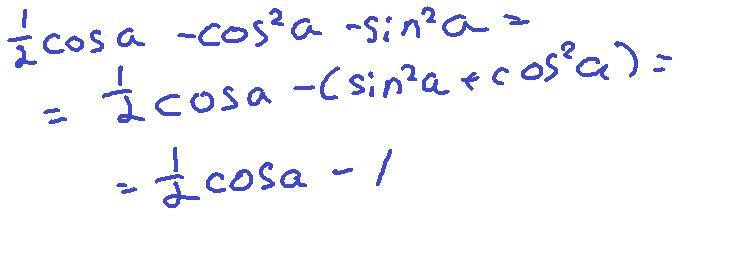 ½ cos a - cos²a - sin²a =
= ½ cos a - (sin²a + cos²a) =
= ½ cos a - 1